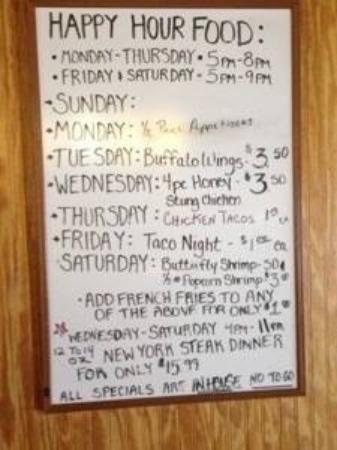 HAPPY HOUR FOOD:
• MONDAY-THURSDAY • 5PM-8PM
• FRIDAY & SATURDAY - 5PM-9PM
• SUNDAY:
• MONDAY: 1/2 Price Appetizers
• TUESDAY: Buffalo Wings • $3.50
• WEDNESDAY: 4pc Honey - $3.50
Stung Chicken
• THURSDAY: CHICKEN TACOS
• FRIDAY: Taco Night - $1.00 ea
SATURDAY: Butterfly Shrimp - 50¢
1/2# Popcorn Shrimp $3.00
• ADD FRENCH FRIES TO ANY
OF THE ABOVE FOR ONLY $1.00
WEDNESDAY-SATURDAY 4PM-11PM
12 TO 14 OZ NEW YORK STEAK DINNER
FOR ONLY $15.99
ALL SPECIALS ART INHOUSE NO TO GO